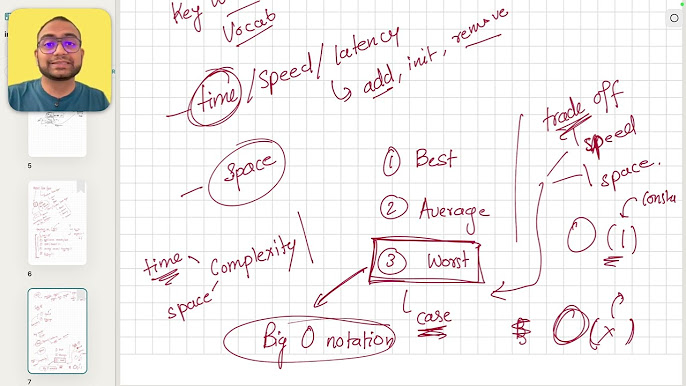 Key
Vocab
time / speed / latency
add, init, remove
Space
① Best
② Average
③ Worst
case
time
space
Complexity
Big O notation
trade off
speed
space.
consta
O (1)
O (x)
5
6
7